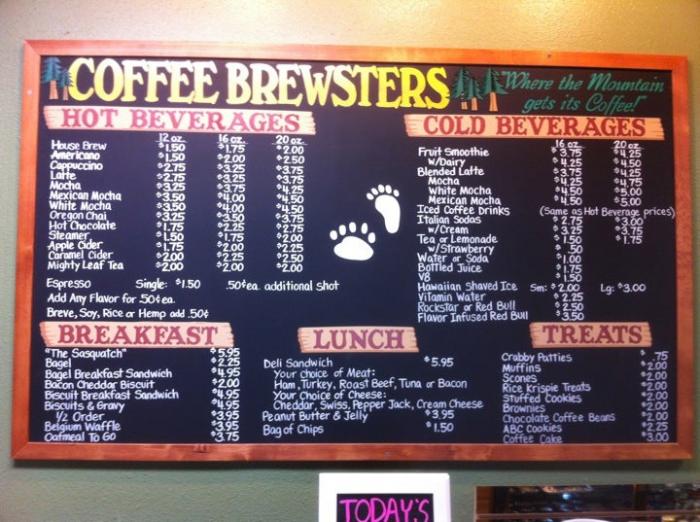 COFFEE BREWSTERS
"Where the Mountain
gets its Coffee!"
HOT BEVERAGES
12 oz. 16 oz. 20 oz.
House Brew $1.50 $1.75 $2.00
Americano $1.50 $2.00 $2.50
Cappuccino $2.75 $3.25 $3.75
Latte $2.75 $3.25 $3.75
Mocha $3.25 $3.75 $4.25
Mexican Mocha $3.50 $4.00 $4.50
White Mocha $3.50 $4.00 $4.50
Oregon Chai $3.25 $3.50 $3.75
Hot Chocolate $1.75 $2.25 $2.75
Steamer $1.50 $1.75 $2.00
Apple Cider $1.75 $2.00 $2.25
Caramel Cider $2.00 $2.25 $2.50
Mighty Leaf Tea $2.00 $2.00 $2.00
Espresso Single: $1.50 .50¢ea. additional shot
Add Any Flavor for .50¢ea.
Breve, Soy, Rice or Hemp add .50¢
COLD BEVERAGES
16 oz. 20 oz.
Fruit Smoothie $3.75 $4.25
w/Dairy $4.25 $4.50
Blended Latte $3.75 $4.25
Mocha $4.25 $4.75
White Mocha $4.50 $5.00
Mexican Mocha $4.50 $5.00
Iced Coffee Drinks (Same as Hot Beverage prices)
Italian Sodas $2.75 $3.00
w/Cream $3.25 $3.75
Tea or Lemonade $1.50 $1.75
w/Strawberry $ .50
Water or Soda $1.00
Bottled Juice $1.75
V8 $1.50
Hawaiian Shaved Ice Sm: $2.00 Lg: $3.00
Vitamin Water $2.25
Rockstar or Red Bull $2.50
Flavor Infused Red Bull $3.50
BREAKFAST
"The Sasquatch" $5.95
Bagel $2.25
Bagel Breakfast Sandwich $4.95
Bacon Cheddar Biscuit $2.00
Biscuit Breakfast Sandwich $4.95
Biscuits & Gravy $4.95
1/2 Order $3.95
Belgium Waffle $3.95
Oatmeal To Go $3.75
LUNCH
Deli Sandwich $5.95
Your Choice of Meat:
Ham, Turkey, Roast Beef, Tuna or Bacon
Your Choice of Cheese:
Cheddar, Swiss, Pepper Jack, Cream Cheese
Peanut Butter & Jelly $3.95
Bag of Chips $1.50
TREATS
Crabby Patties $ .75
Muffins $2.00
Scones $2.00
Rice Krispie Treats $2.00
Stuffed Cookies $2.00
Brownies $2.00
Chocolate Coffee Beans $2.00
ABC Cookies $2.25
Coffee Cake $3.00
TODAY'S